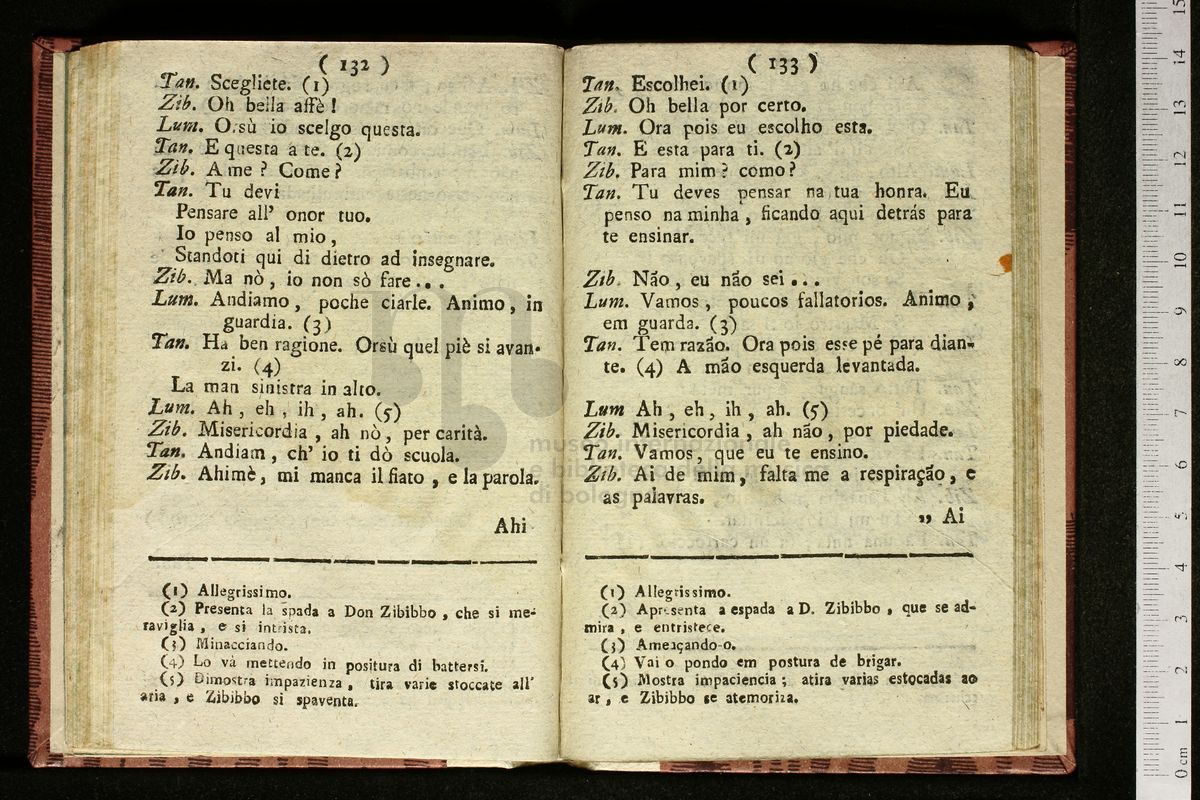 ( 132 )
Tan. Scegliete. (1)
Zib. Oh bella affè!
Lum. Orsù io scelgo questa.
Tan. E questa a te. (2)
Zib. A me? Come?
Tan. Tu devi
Pensare all' onor tuo.
Io penso al mio,
Standoti qui di dietro ad insegnare.
Zib. Ma nò, io non sò fare...
Lum. Andiamo, poche ciarle. Animo, in
guardia. (3)
Tan. Ha ben ragione. Orsù quel piè si avan-
zi. (4)
La man sinistra in alto.
Lum. Ah, eh, ih, ah. (5)
Zib. Misericordia, ah nò, per carità.
Tan. Andiam, ch' io ti dò scuola.
Zib. Ahimè, mi manca il fiato, e la parola.
Ahi
(1) Allegrissimo.
(2) Presenta la spada a Don Zibibbo, che si me-
raviglia, e si intrista.
(3) Minacciando.
(4) Lo và mettendo in positura di battersi.
(5) Dimostra impazienza, tira varie stoccate all'
aria, e Zibibbo si spaventa.
( 133 )
Tan. Escolhei. (1)
Zib. Oh bella por certo.
Lum. Ora pois eu escolho esta.
Tan. E esta para ti. (2)
Zib. Para mim? como?
Tan. Tu deves pensar na tua honra. Eu
penso na minha, ficando aqui detrás para
te ensinar.
Zib. Não, eu não sei...
Lum. Vamos, poucos fallatorios. Animo,
em guarda. (3)
Tan. Tem razão. Ora pois esse pé para dian-
te. (4) A mão esquerda levantada.
Lum Ah, eh, ih, ah. (5)
Zib. Misericordia, ah não, por piedade.
Tan. Vamos, que eu te ensino.
Zib. Ai de mim, falta me a respiração, e
as palavras.
„ Ai
(1) Allegrissimo.
(2) Apresenta a espada a D. Zibibbo, que se ad-
mira, e entristece.
(3) Ameaçando-o.
(4) Vai o pondo em postura de brigar.
(5) Mostra impaciencia; atira varias estocadas ao
ar, e Zibibbo se atemoriza.
museo internazionale
e biblioteca della musica
di bologna
0 cm 1 2 3 4 5 6 7 8 9 10 11 12 13 14 15